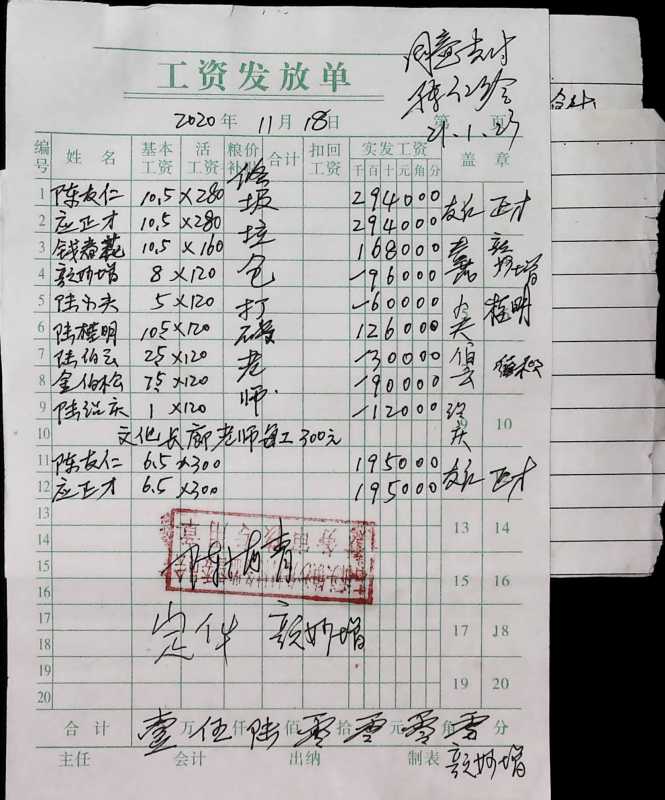 同意支付
21.1.23
合计
工资发放单
2020年 11月 18日 第 页
编号 姓名 基本工资 活工资 粮价补贴 合计 扣回工资 实发工资 千百十元角分 盖章
1 陈友仁 10.5 × 280 294000 友仁 正才
2 应正才 10.5 × 280 294000
3 钱春花 10.5 × 160 168000
4 颜妙增 8 × 120 -96000 颜妙增
5 陆 夫 5 × 120 -60000 桂明
6 陆桂明 10.5 × 120 126000
7 陆伯云 2.5 × 120 -30000 伯云
8 金伯松 7.5 × 120 -90000 伯松
9 陆绍庆 1 × 120 -12000 绍庆 9 10
垃圾仓打磗老师
10 文化长廊老师每工300元
11 陈友仁 6.5 × 300 195000 友仁 正才
12 应正才 6.5 × 300 195000
13 13 14
14
15 15 16
16
17 17 18
18
19 19 20
20
颜妙增
合计 壹万伍仟陆佰零拾零元零角零分
主任 会计 出纳 制表 颜妙增